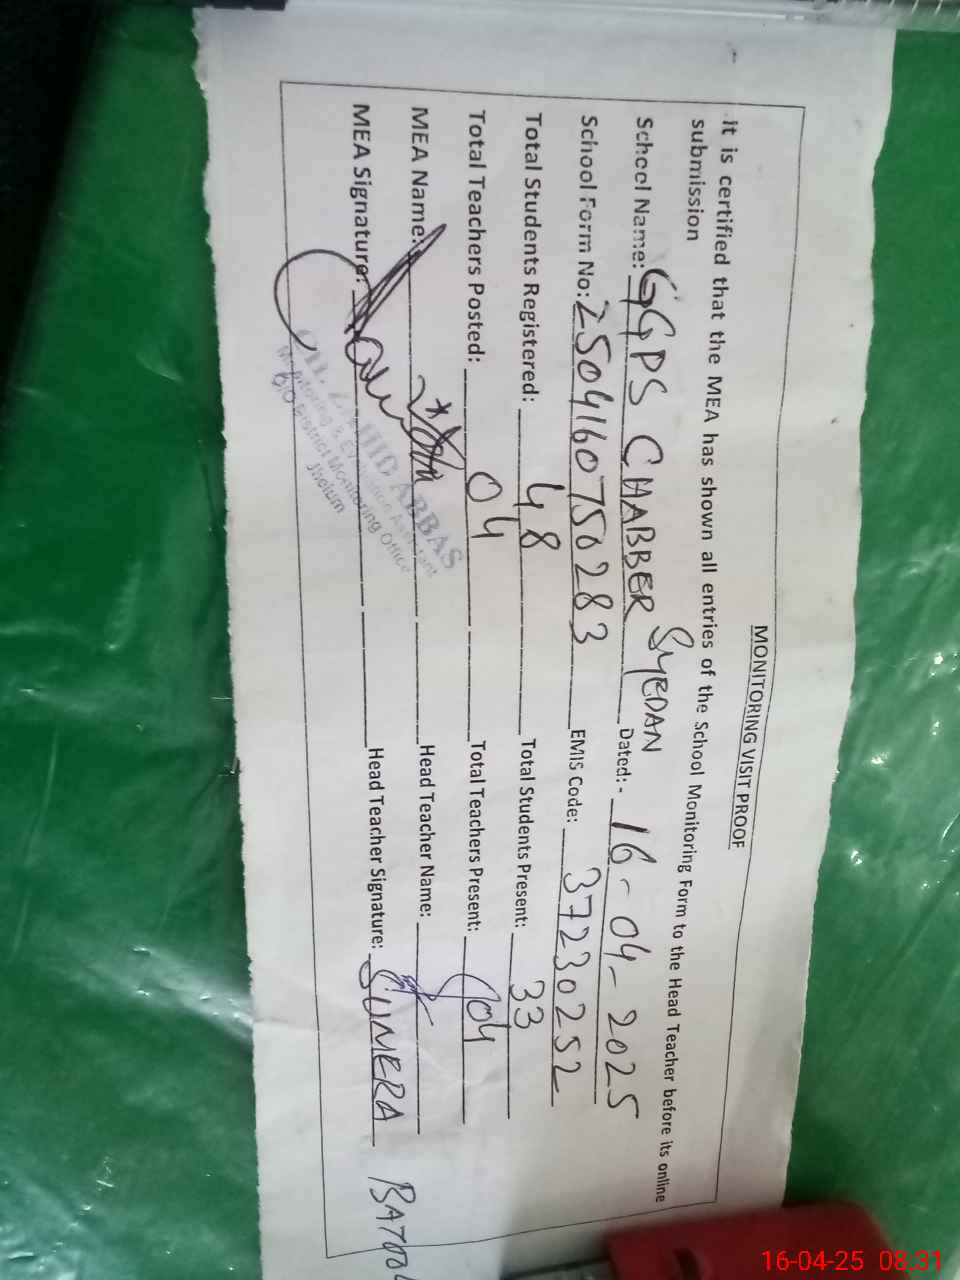 MONITORING VISIT PROOF
It is certified that the MEA has shown all entries of the School Monitoring Form to the Head Teacher before its online
submission
School Name: GGPS CHABBER SYEDAN Dated:- 16-04-2025
School Form No: 2504160750283 EMIS Code: 37230252
Total Students Registered: 48 Total Students Present: 33
Total Teachers Posted: 04 Total Teachers Present: 04
MEA Name: Head Teacher Name:
MEA Signature: Head Teacher Signature: SUMERA BATOOL
ABBAS
Monitoring & Evaluation Assistant
O/O District Monitoring Office
Jhelum
16-04-25 08:31